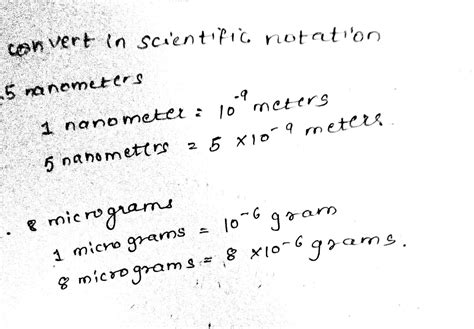 convert in scientific notation
.5 nanometers
1 nanometer = 10⁻⁹ meters
5 nanometers = 5 ×10⁻⁹ meters.
. 8 micrograms
1 micro grams = 10⁻⁶ gram
8 micrograms = 8 ×10⁻⁶ grams.